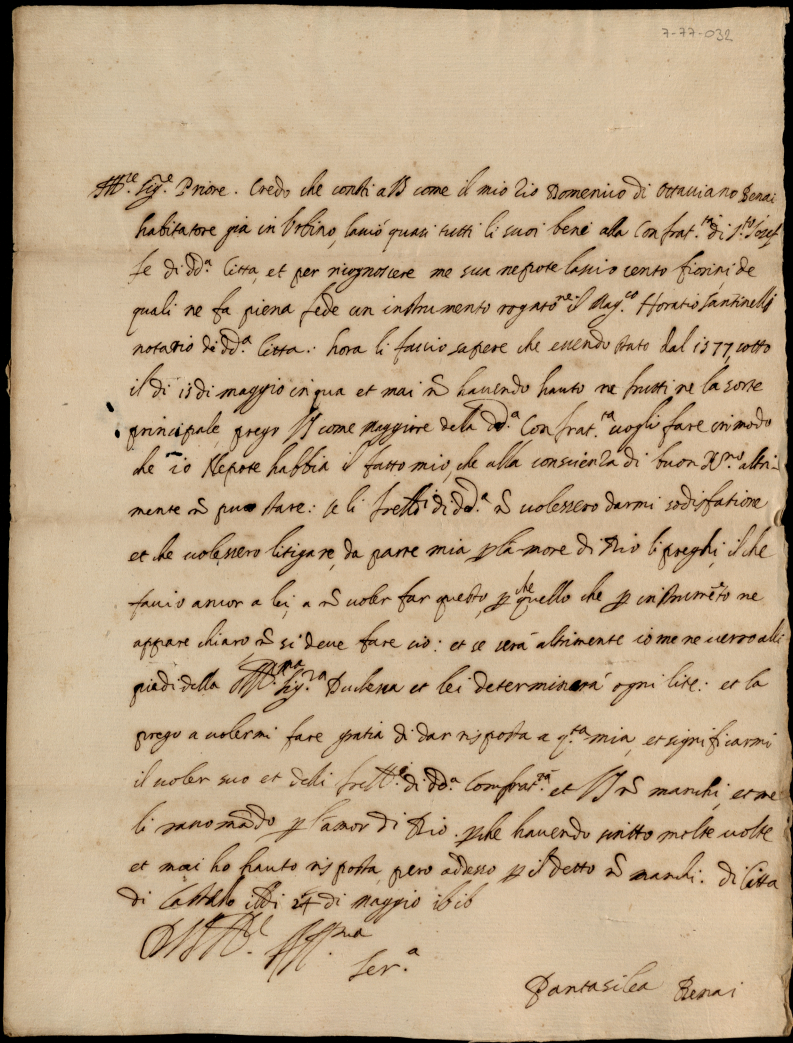 7-77-032
Ill.re Sig.re Priore. Credo che consti a VS come il mio Zio Domenico di Ottaviano Benai
habitatore già in Urbino, lasciò quasi tutti li suoi beni alla Confrat.ta di S.to Josef
fe di dd.a Citta, et per ricognoscere me sua nepote lascio cento fiorini de
quali ne fa piena fede un instrumento rogato il Mag.co Horatio Santinelli
notario de dd.a Citta: hora li faccio sapere che essendo stato dal 1577, sotto
il di 15 di maggio in qua et mai nõ havendo hauto ne frutti ne la sorte
principale, prego VS come maggiore dela dd.a Confrat.ta vogli fare in modo
che io Nepote habbia il fatto mio, che alla conscienza di buon Xp.no altri-
mente nõ puo stare: se li fretelli di dd.a nõ volessero darmi sodisfatione
et che volessero litigare, da parte mia p lamore di Dio li preghi, il che
faccio ancor a lei, a nõ voler far questo, p che quello che p instrumẽto ne
appare chiaro nõ si deve fare cio: et se serà altrimente io me ne verro alli
piedi della Sig.ra Duchessa et lei determinarà ogni lite: et la
prego a volermi fare gratia di dar risposta a q.ta mia, et significarmi
il voler suo et delli fratelli di dd.a Confrat.ta et VS nõ manchi, et me
li racomãdo p lamor di Dio. p che havendo scritto molte volte
et mai ho hauto risposta pero adesso p il detto nõ manchi. di Citta
di Castello il di 24 di Maggio 1616
D VS Ill.re
Ser.a
Pantasilea Benai